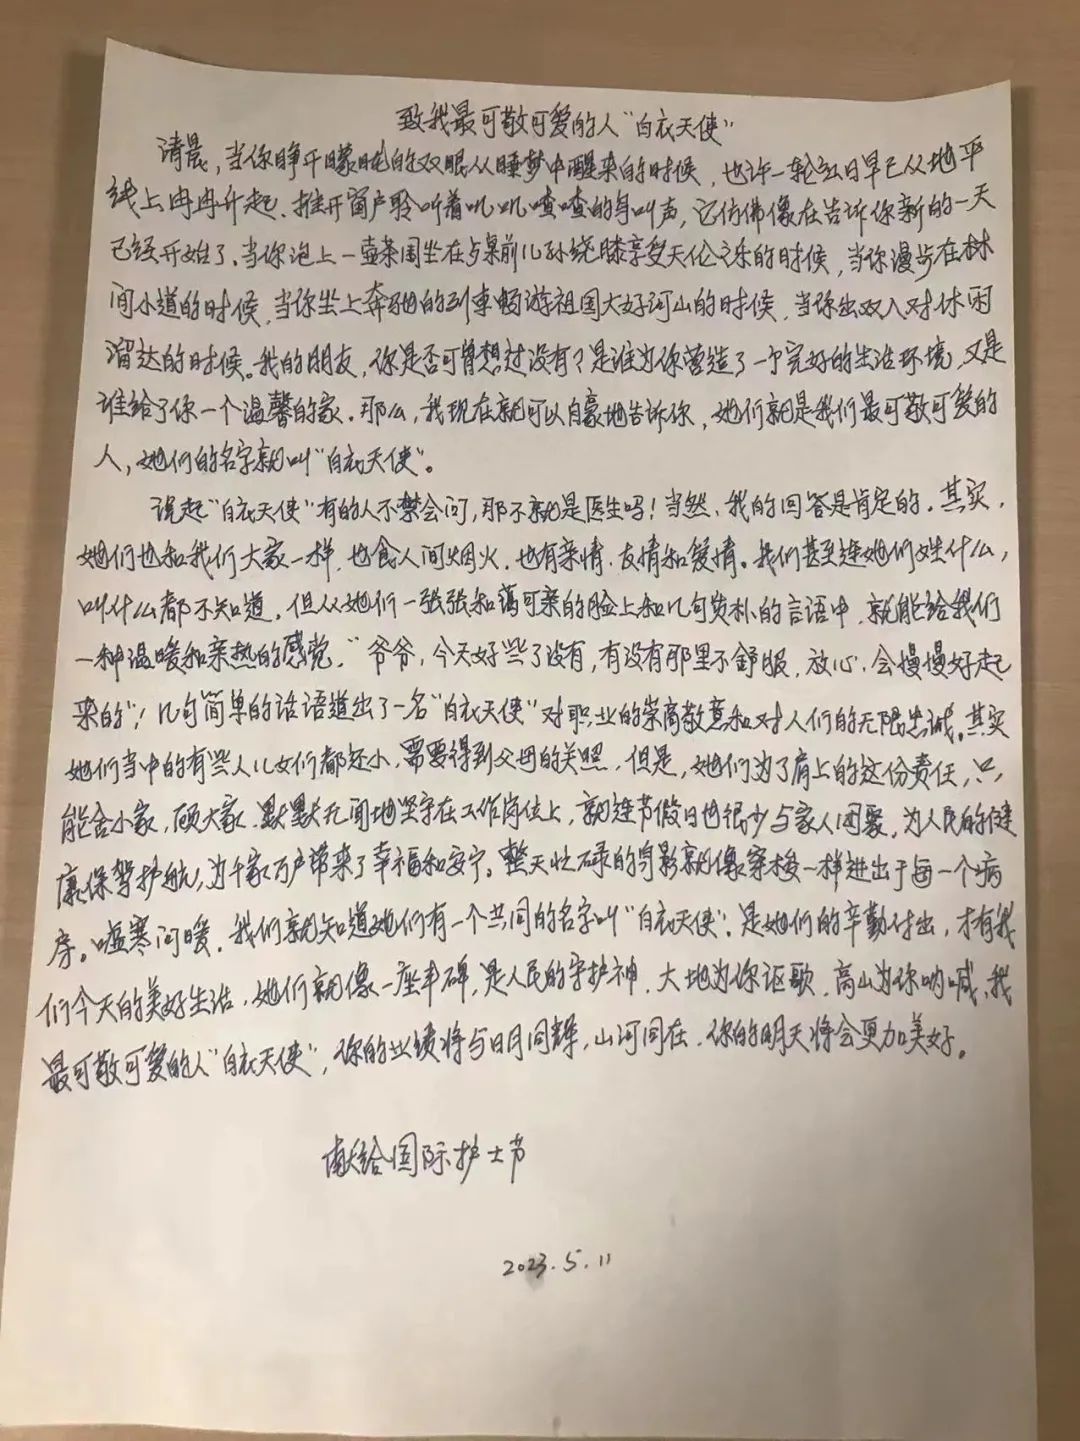 致我最可敬可爱的人“白衣天使”
清晨，当你睁开朦胧的双眼从睡梦中醒来的时候，也许一轮红日早已从地平
线上冉冉升起、推开窗户聆听着叽叽喳喳的鸟叫声，它仿佛像在告诉你新的一天
已经开始了、当你泡上一壶茶围坐在桌前儿孙绕膝享受天伦之乐的时候，当你漫步在林
间小道的时候，当你坐上奔驰的列车畅游祖国大好河山的时候，当你出双入对休闲
溜达的时候。我的朋友，你是否可曾想过没有？是谁为你营造了一个完好的生活环境，又是
谁给了你一个温馨的家．那么，我现在就可以自豪地告诉你，她们就是我们最可敬可爱的
人，她们的名字就叫“白衣天使”。
说起“白衣天使”有的人不禁会问，那不就是医生吗！当然、我的回答是肯定的．其实，
她们也和我们大家一样，也食人间烟火．也有亲情．友情和爱情。我们甚至连她们姓什么，
叫什么都不知道．但从她们一张张和蔼可亲的脸上和几句质朴的言语中，就能给我们
一种温暖和亲热的感觉．“爷爷，今天好些了没有，有没有那里不舒服．放心．会慢慢好起
来的”！几句简单的话语道出了一名“白衣天使”对职业的崇高敬意和对人们的无限忠诚。其实
她们当中的有些人儿女们都还小．需要得到父母的关照．但是，她们为了肩上的这份责任，只
能舍小家，顾大家．默默无闻地坚守在工作岗位上，就连节假日也很少与家人团聚，为人民的健
康保驾护航，为千家万户带来了幸福和安宁。整天忙碌的身影就像穿梭一样进出于每一个病
房。嘘寒问暖．我们就知道她们有一个共同的名字叫“白衣天使”．是她们的辛勤付出，才有我
们今天的美好生活．她们就像一座丰碑，是人民的守护神．大地为你讴歌．高山为你呐喊、我
最可敬可爱的人“白衣天使”，你的业绩将与日月同辉，山河同在．你的明天将会更加美好。
献给国际护士节
2023.5.11